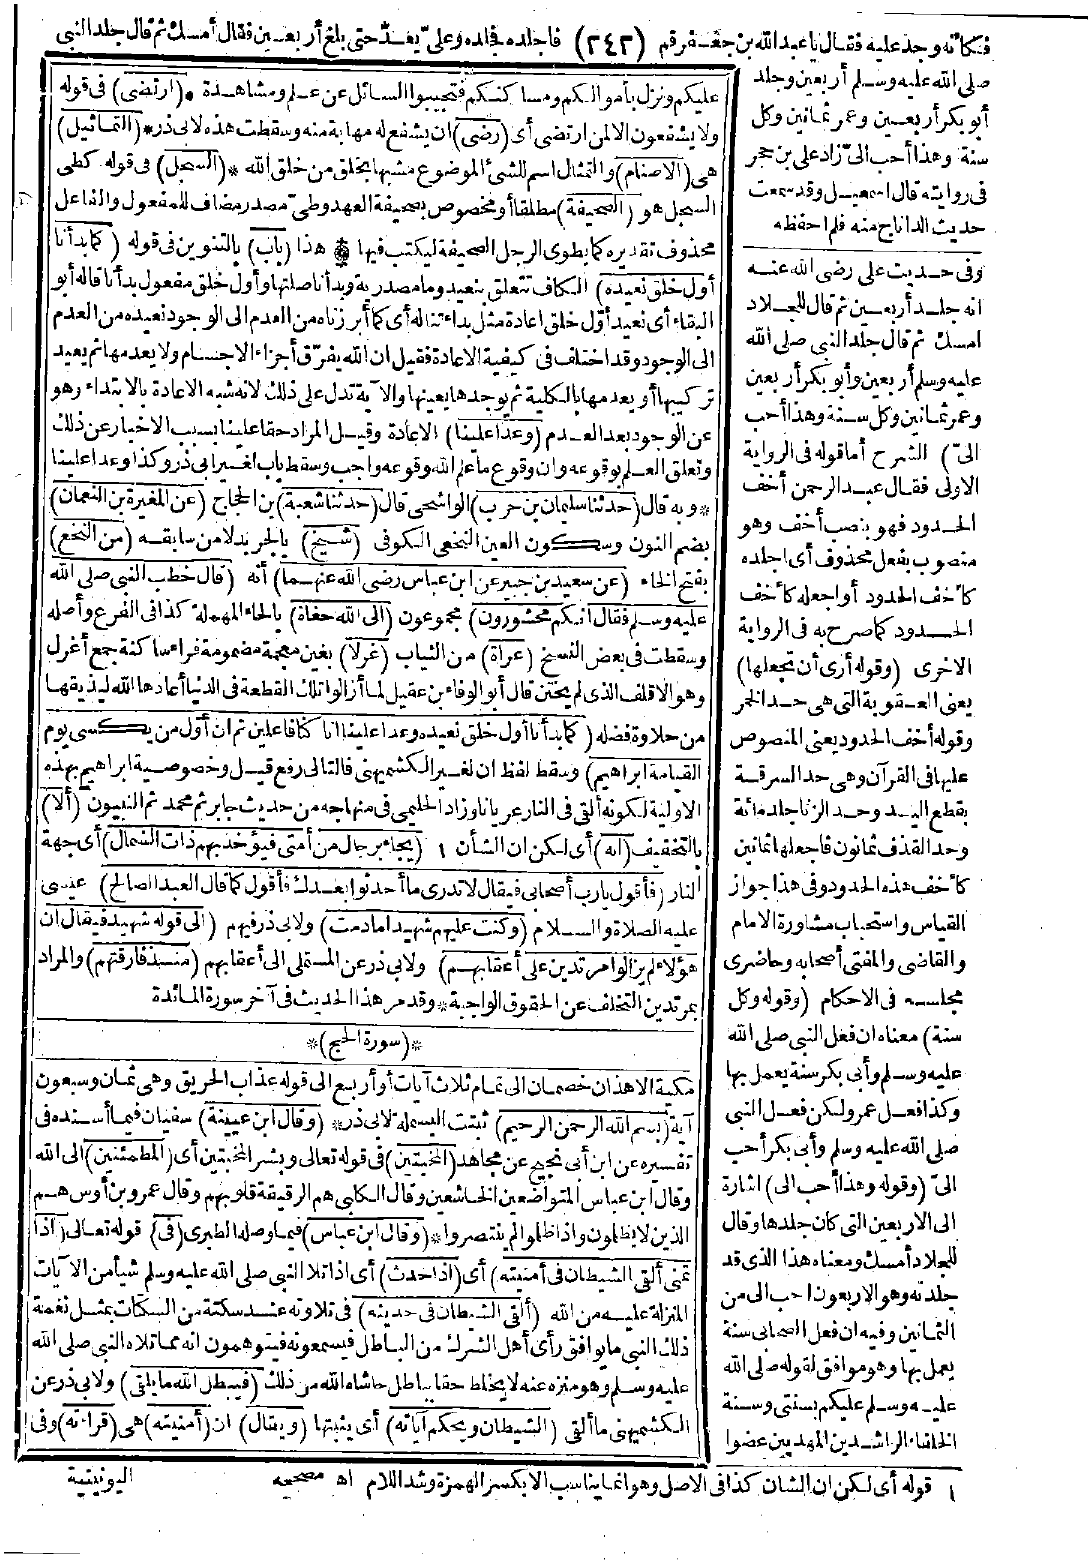 فكأنه وجد عليه فقال يا عبد الله بن جعفر قم (٢٤٢) فاجلده فجلده وعلىّ يعدّ حتى بلغ أربعين فقال أمسك ثم قال جلد النبى
صلى الله عليه وسلم أربعين وجلد
أبو بكر أربعين وعمر ثمانين وكل
سنة وهذا أحب الىّ زاد على بن حجر
فى روايته قال اسمعيل وقد سمعت
حديث الداناج منه فلم احفظه
وفى حديث على رضى الله عنه
انه جلد أربعين ثم قال للجلاد
امسك ثم قال جلد النبى صلى الله
عليه وسلم أربعين وأبو بكر أربعين
وعمر ثمانين وكل سنة وهذا أحب
الىّ) الشرح أما قوله فى الرواية
الاولى فقال عبد الرحمن أخف
الحدود فهو بنصب أخف وهو
منصوب بفعل محذوف أى اجلده
كأخف الحدود أو اجعله كأخف
الحدود كما صرح به فى الرواية
الاخرى (وقوله أرى أن تجعلها)
يعنى العقوبة التى هى حد الخمر
وقوله أخف الحدود يعنى المنصوص
عليها فى القرآن وهى حد السرقة
بقطع اليد وحد الزنا جلد مائة
وحد القذف ثمانون فاجعلها ثمانين
كأخف هذه الحدود وفى هذا جواز
القياس واستحباب مشاورة الامام
والقاضى والمفتى أصحابه وحاضرى
مجلسه فى الاحكام (وقوله وكل
سنة) معناه ان فعل النبى صلى الله
عليه وسلم وأبى بكر سنة يعمل بها
وكذا فعل عمر ولكن فعل النبى
صلى الله عليه وسلم وأبى بكر أحب
الىّ (وقوله وهذا أحب الى) اشارة
الى الاربعين التى كان جلدها وقال
للجلاد أمسك ومعناه هذا الذى قد
جلدته وهو الاربعون احب الى من
الثمانين وفيه ان فعل الصحابى سنة
يعمل بها وهو موافق لقوله صلى الله
عليه وسلم عليكم بسنتى وسنة
الخلفاء الراشدين المهديين عضوا
عليكم ونزل بأموالكم ومساكنكم فتجيبوا السائل عن علم ومشاهدة * (ارتضى) فى قوله
ولا يشفعون الا لمن ارتضى أى (رضى) ان يشفع له مهابة منه وسقطت هذه لابى ذر * (التماثيل)
هى (الاصنام) والتمثال اسم للشئ الموضوع مشبها بخلق من خلق الله * (السجل) فى قوله كطى
السجل هو (الصحيفة) مطلقا أو مخصوص بصحيفة العهد وطى مصدر مضاف للمفعول والفاعل
محذوف تقديره كما يطوى الرجل الصحيفة ليكتب فيها * هذا (باب) بالتنوين فى قوله (كما بدأنا
أول خلق نعيده) الكاف تتعلق بنعيد وما مصدرية وبدأنا صلتها وأول خلق مفعول بدأنا قاله أبو
البقاء أى نعيد أوّل خلق اعادة مثل بداءتنا له أى كما أبرزناه من العدم الى الوجود نعيده من العدم
الى الوجود وقد اختلف فى كيفية الاعادة فقيل ان الله يفرّق أجزاء الاجسام ولا يعدمها ثم يعيد
تركيبها أو يعدمها بالكلية ثم يوجدها بعينها والآية تدل على ذلك لانه شبه الاعادة بالابتداء وهو
عن الوجود بعد العدم (وعدا علينا) الاعادة وقيل المراد حقا علينا بسبب الاخبار عن ذلك
وتعلق العلم بوقوعه وان وقوع ما علم الله وقوعه واجب وسقط باب لغير ابى ذر وكذا وعدا علينا
* وبه قال (حدثنا سليمان بن حرب) الواشحى قال (حدثنا شعبة) بن الحجاج (عن المغيرة بن النعمان)
بضم النون وسكون العين النخعى الكوفى (شيخ) بالجر بدلا من سابقه (من النخع)
بفتح الخاء (عن سعيد بن جبير عن ابن عباس رضى الله عنهما) أنه (قال خطب النبى صلى الله
عليه وسلم فقال انكم محشورون) مجموعون (الى الله حفاة) بالحاء المهملة كذا فى الفرع وأصله
وسقطت فى بعض النسخ (عراة) من الثياب (غرلا) بغين معجمة مضمومة فراء ساكنة جمع أغرل
وهو الاقلف الذى لم يختن قال أبو الوفاء بن عقيل لما أزالوا تلك القطعة فى الدنيا أعادها الله ليذيقها
من حلاوة فضله (كما بدأنا أول خلق نعيده وعدا علينا انا كنا فاعلين ثم ان أوّل من يكسى يوم
القيامة ابراهيم) وسقط لفظ ان لغير الكشميهنى فالتالى رفع قيل وخصوصية ابراهيم بهذه
الاولية لكونه ألقى فى النار عريانا وزاد الحليمى فى منهاجه من حديث جابر ثم محمد ثم النبيون (ألا)
بالتخفيف (انه) أى لكن ان الشأن ١ (يجاء برجال من أمتى فيؤخذ بهم ذات الشمال) أى جهة
النار (فأقول يارب أصحابى فيقال لا تدرى ما أحدثوا بعدك فأقول كما قال العبد الصالح) عيسى
عليه الصلاة والسلام (وكنت عليهم شهيدا ما دمت) ولابى ذر فيهم (الى قوله شهيد فيقال ان
هؤلاء لم يزالوا مرتدين على أعقابهم) ولابى ذر عن المستملى الى أعقابهم (منذ فارقتهم) والمراد
بمرتدين التخلف عن الحقوق الواجبة * وقد مر هذا الحديث فى آخر سورة المائدة
*(سورة الحج)*
مكية الا هذان خصمان الى تمام ثلاث آيات أو أربع الى قوله عذاب الحريق وهى ثمان وسبعون
آية (بسم الله الرحمن الرحيم) ثبتت البسملة لابى ذر * (وقال ابن عيينة) سفيان فيما أسنده فى
تفسيره عن ابن أبى نجيح عن مجاهد (المخبتين) فى قوله تعالى وبشر المخبتين أى (المطمئنين) الى الله
وقال ابن عباس المتواضعين الخاشعين وقال الكلبى هم الرقيقة قلوبهم وقال عمرو بن أوس هم
الذين لا يظلمون واذا ظلموا لم ينتصروا * (وقال ابن عباس) فيما وصله الطبرى (فى) قوله تعالى (اذا
تمنى ألقى الشيطان فى أمنيته) أى (اذا حدث) أى اذا تلا النبى صلى الله عليه وسلم شيأ من الآيات
المنزلة عليه من الله (ألقى الشيطان فى حديثه) فى تلاوته عند سكتة من السكتات بمثل نغمة
ذلك النبى ما يوافق رأى أهل الشرك من الباطل فيسمعونه فيتوهمون انه مما تلاه النبى صلى الله
عليه وسلم وهو منزه عنه لا يخلط حقا بباطل حاشاه الله من ذلك (فيبطل الله ما يلقى) ولابى ذر عن
الكشميهنى ما ألقى (الشيطان ويحكم آياته) أى يثبتها (ويقال) ان (أمنيته) هى (قراءته) وفى
١ قوله أى لكن ان الشان كذا فى الاصل وهو انما يناسب الا بكسر الهمزة وشد اللام اه مصححه
اليونينية